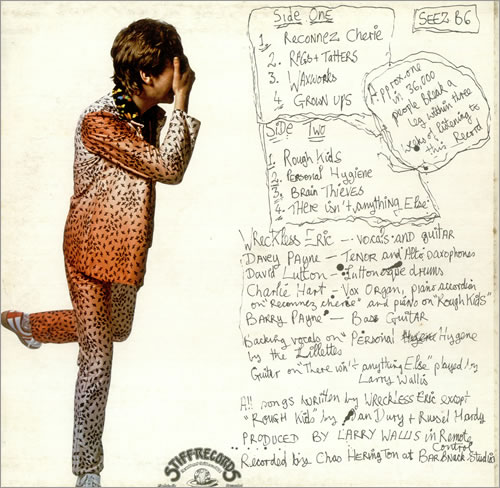 Side One
1. Reconnez Cherie
2. Rags + Tatters
3. Waxworks
4. Grown ups
SEEZ B6
Approx. one
in 36,000
people break a
leg within three
weeks of listening to
this Record
Side Two
1. Rough Kids
2. Personal Hygiene
3. Brain Thieves
4. There isn't anything Else
Wreckless Eric — vocals and guitar
Davey Payne — Tenor and Alto saxophones
David Lutton — Luttonesque drums
Charlie Hart — Vox Organ, piano accordion
on "Reconnez cherie" and piano on "Rough Kids"
Barry Payne — Bass Guitar
Backing vocals on "Personal Hygene
by the Lillettes
Guitar on "There isn't anything Else" played by
Larry Wallis
All songs written by Wreckless Eric except
"Rough Kids" by Ian Dury + Russel Hardy
PRODUCED BY LARRY WALLIS in Remote
Control
Recorded by Chas Herington at BarnNack Studios
STIFF RECORDS